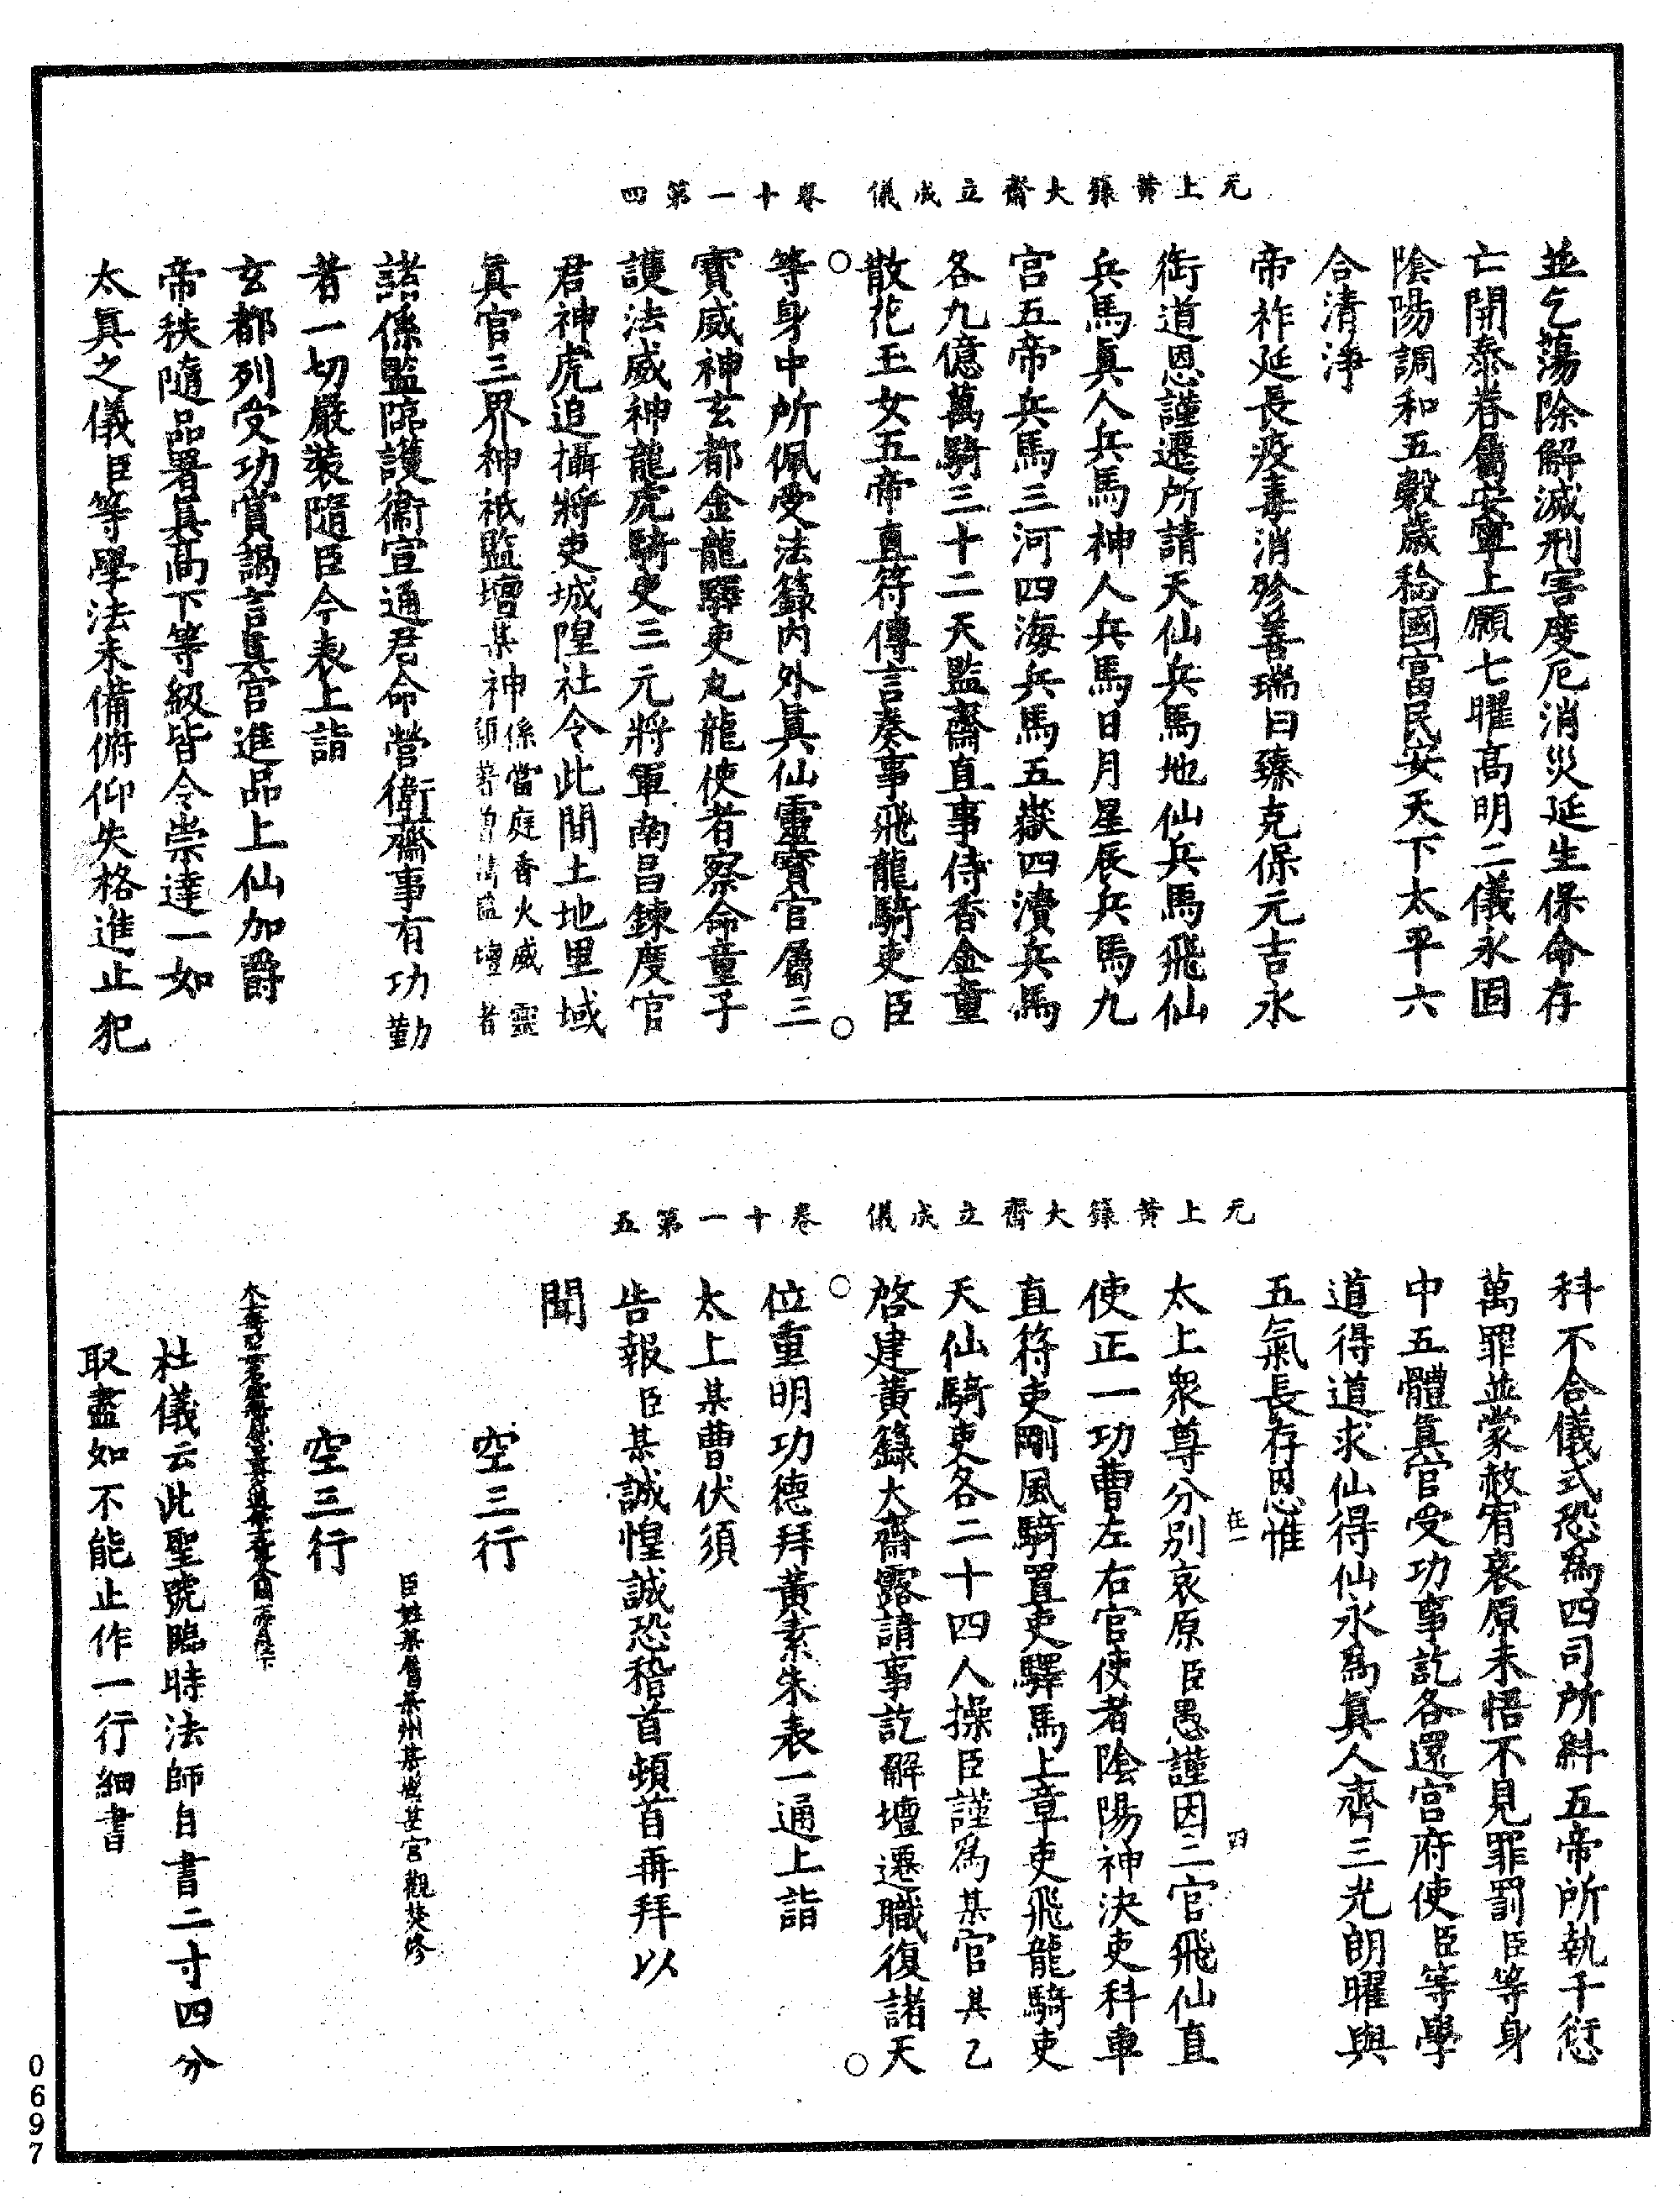 元上黃籙大齋立成儀　卷十一第四
並乞蕩除解滅刑害度厄消災延生保命存
亡開泰眷屬安寧上願七曜高明二儀永固
陰陽調和五穀歲稔國富民安天下太平六
合清淨
帝祚延長疫毒消殄善瑞日臻克保元吉永
銜道恩謹遷所請天仙兵馬地仙兵馬飛仙
兵馬眞人兵馬神人兵馬日月星辰兵馬九
宮五帝兵馬三河四海兵馬五嶽四瀆兵馬
各九億萬騎三十二天監齋直事侍香金童
散花玉女五帝直符傳言奏事飛龍騎吏臣
等身中所佩受法籙內外眞仙靈寶官屬三
寶威神玄都金龍驛吏九龍使者察命童子
護法威神龍虎騎吏三元將軍南昌鍊度官
君神虎追攝將吏城隍社令此間土地里域
眞官三界神祇監壇某神係當庭香火威靈
監壇者
諸係監臨護衞宣通君命營衛齋事有功勤
者一切嚴裝隨臣今表上詣
玄都列受功賞謁言眞官進品上仙加爵
帝秩隨品署眞高下等級皆令崇達一如
太眞之儀臣等學法未備俯仰失格進止犯
元上黃籙大齋立成儀　卷十一第五
科不合儀式恐爲四司所糾五帝所執千愆
萬罪並蒙赦宥哀原未悟不見罪罰臣等身
中五體眞官受功事訖各還宮府使臣等學
道得道求仙得仙永爲眞人齊三光朗曜與
五氣長存恩惟
在一　四
太上衆尊分別哀原臣愚謹因二官飛仙直
使正一功曹左右官使者陰陽神決吏科車
直符吏剛風騎置吏驛馬上章吏飛龍騎吏
天仙騎吏各二十四人操臣謹爲某官某乙
啓建黃籙大齋露請事訖解壇遷職復諸天
位重明功德拜黃素朱表一通上詣
太上某曹伏須
告報臣某誠惶誠恐稽首頓首再拜以
聞
空三行
臣姓某屬某州某縣某宮觀焚修
空三行
杜儀云此聖號臨時法師自書二寸四分
取盡如不能止作一行細書
0697